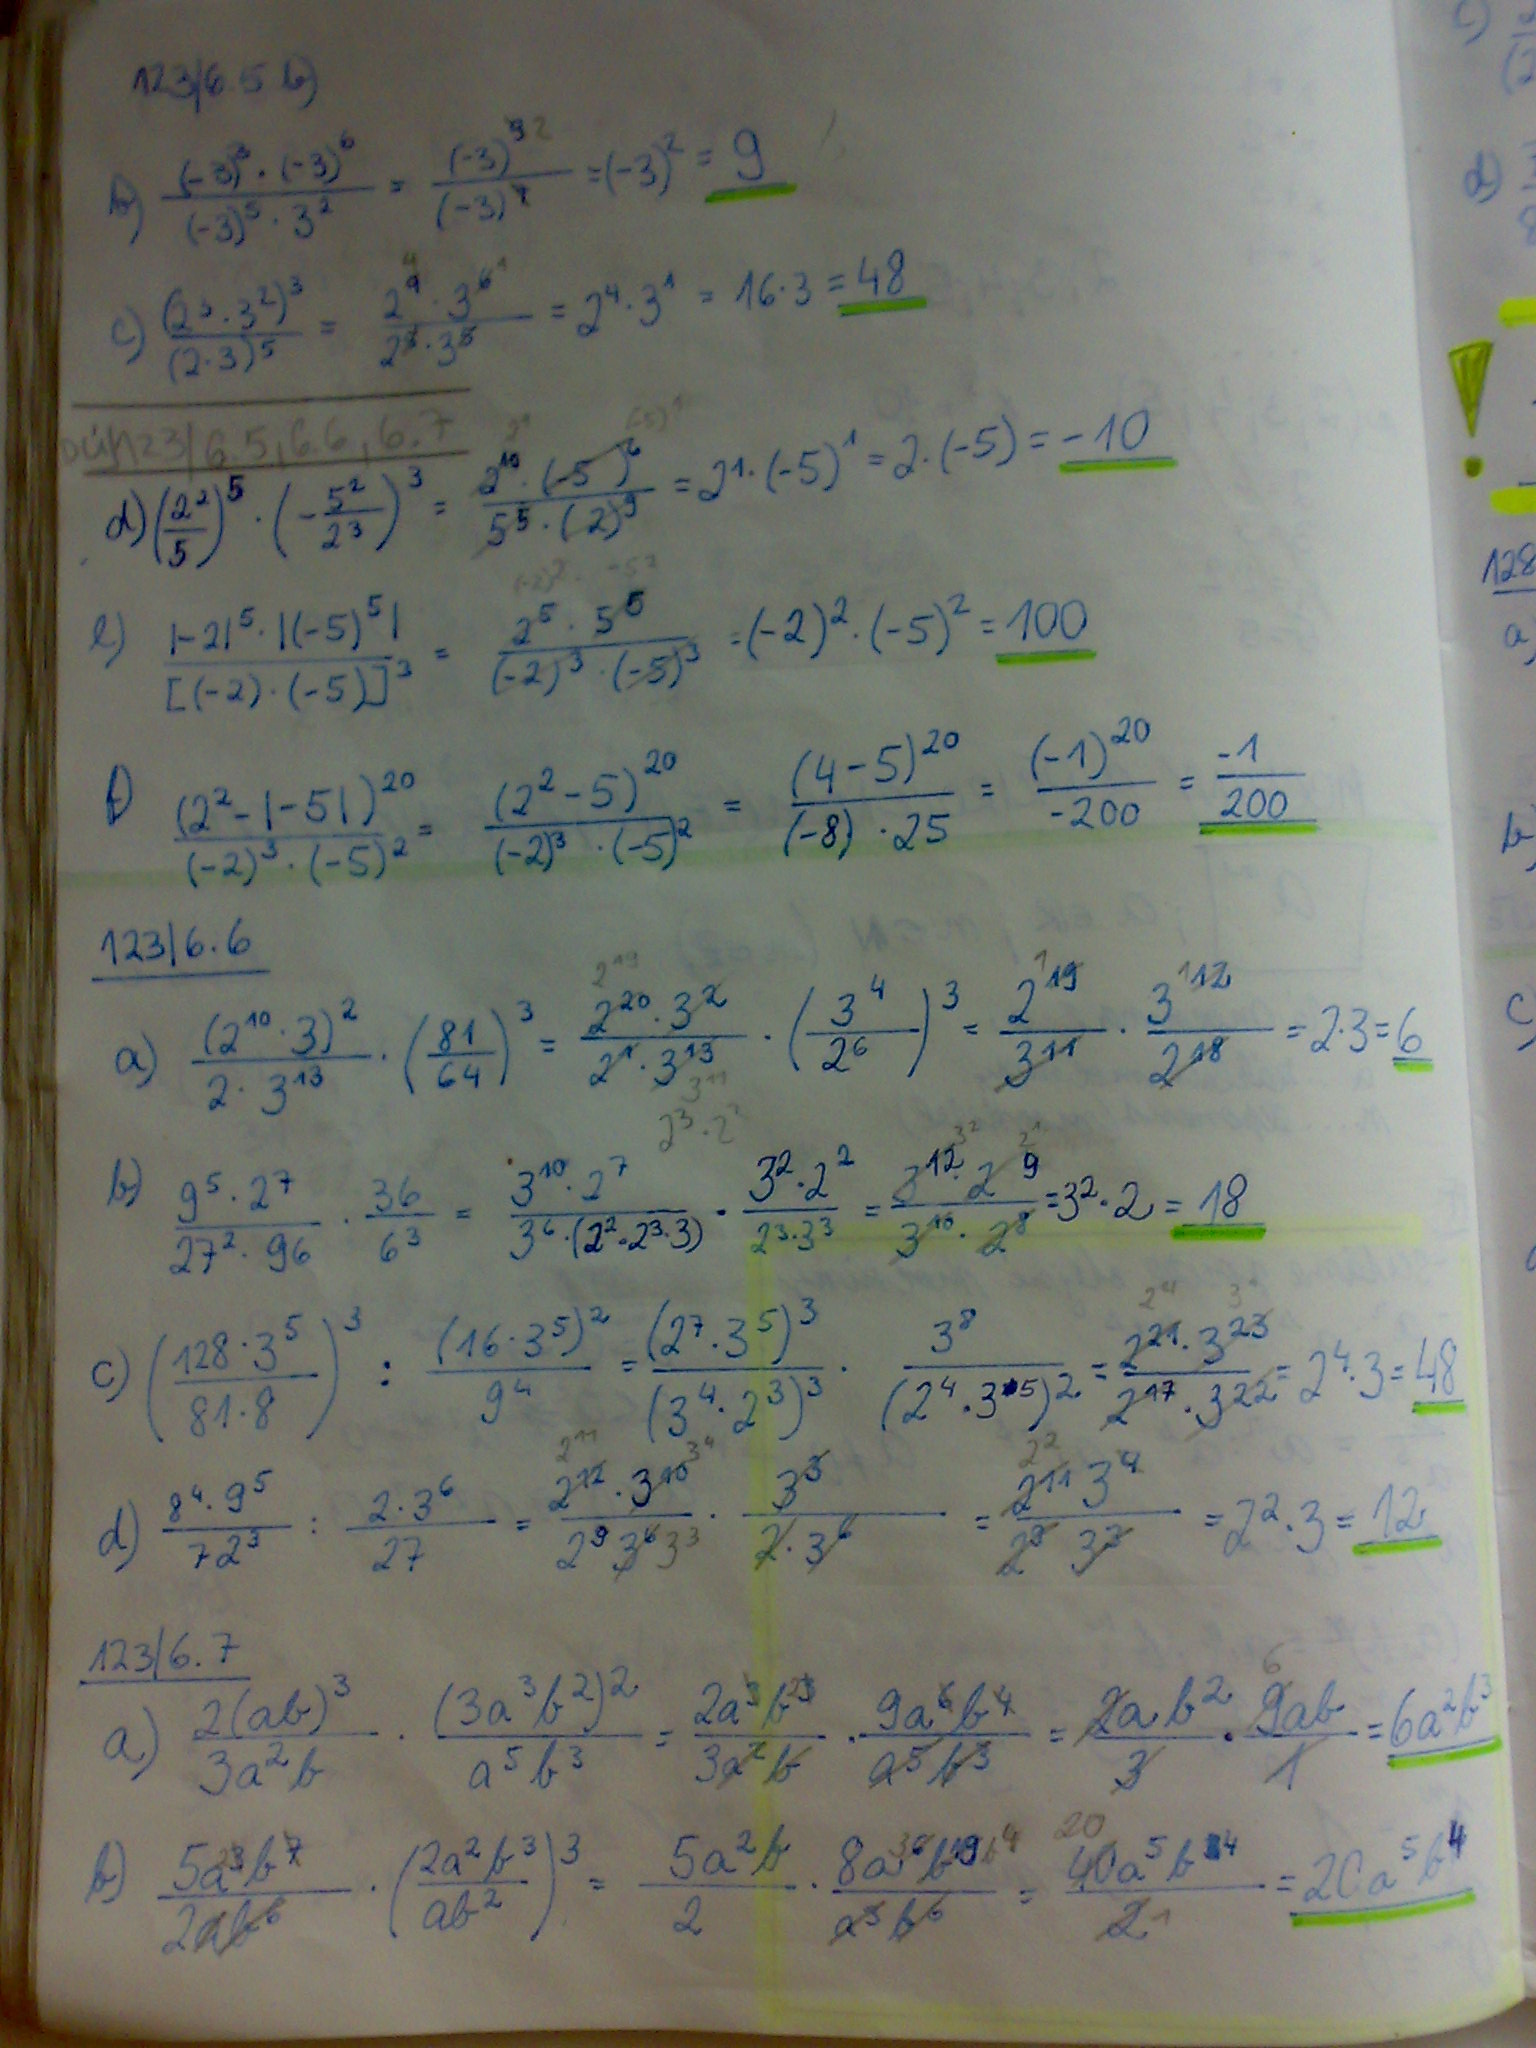 123/6.5 b)
b) (-3)³ · (-3)⁶ / (-3)⁵ · 3² = (-3)⁹ ² / (-3)⁷ = (-3)² = 9
c) (2³ · 3²)³ / (2 · 3)⁵ = 2⁹ · 3⁶ / 2⁵ · 3⁵ = 2⁴ · 3¹ = 16 · 3 = 48
123/6.5, 6.6, 6.7
d) (2²/5)⁵ · (-5²/2³)³ = 2¹⁰ · (-5)⁶ / 5⁵ · (2)⁹ = 2¹ · (-5)¹ = 2 · (-5) = -10
e) |-2|⁵ · |(-5)⁵| / [(-2) · (-5)]³ = 2⁵ · 5⁵ / (-2)³ · (-5)³ = (-2)² · (-5)² = 100
f) (2² - |-5|)²⁰ / (-2)³ · (-5)² = (2² - 5)²⁰ / (-2)³ · (-5)² = (4 - 5)²⁰ / (-8) · 25 = (-1)²⁰ / -200 = -1 / 200
123/6.6
a) (2¹⁰ · 3)² / 2 · 3¹³ · (81/64)³ = 2²⁰ · 3² / 2¹ · 3¹³ · (3⁴/2⁶)³ = 2¹⁹ / 3¹¹ · 3¹² / 2¹⁸ = 2 · 3 = 6
2³ · 2²
b) 9⁵ · 2⁷ / 27² · 96 · 36 / 6³ = 3¹⁰ · 2⁷ / 3⁶ · (2² · 2³ · 3) · 3² · 2² / 2³ · 3³ = 3¹² · 2⁹ / 3¹⁰ · 2⁸ = 3² · 2 = 18
c) (128 · 3⁵ / 81 · 8)³ : (16 · 3⁵)² / 9⁴ = (2⁷ · 3⁵)³ / (3⁴ · 2³)³ · 3⁸ / (2⁴ · 3⁵)² = 2²¹ · 3²³ / 2¹⁷ · 3²² = 2⁴ · 3 = 48
d) 8⁴ · 9⁵ / 72³ : 2 · 3⁶ / 27 = 2¹² · 3¹⁰ / 2⁹ 3⁶ 3³ · 3³ / 2 · 3⁶ = 2¹¹ 3⁴ / 2⁹ 3³ = 2² · 3 = 12
123/6.7
a) 2(ab)³ / 3a²b · (3a³b²)² / a⁵b³ = 2a³b³ / 3a²b · 9a⁶b⁴ / a⁵b³ = 2ab² / 3 · 9ab / 1 = 6a²b³
b) 5a³b⁷ / 2ab⁶ · (2a²b³ / ab²)³ = 5a²b / 2 · 8a⁶b⁹ / a³b⁶ = 40a⁵b⁴ / 2 = 20a⁵b⁴
c)
d)
8
128
a)
b)
c